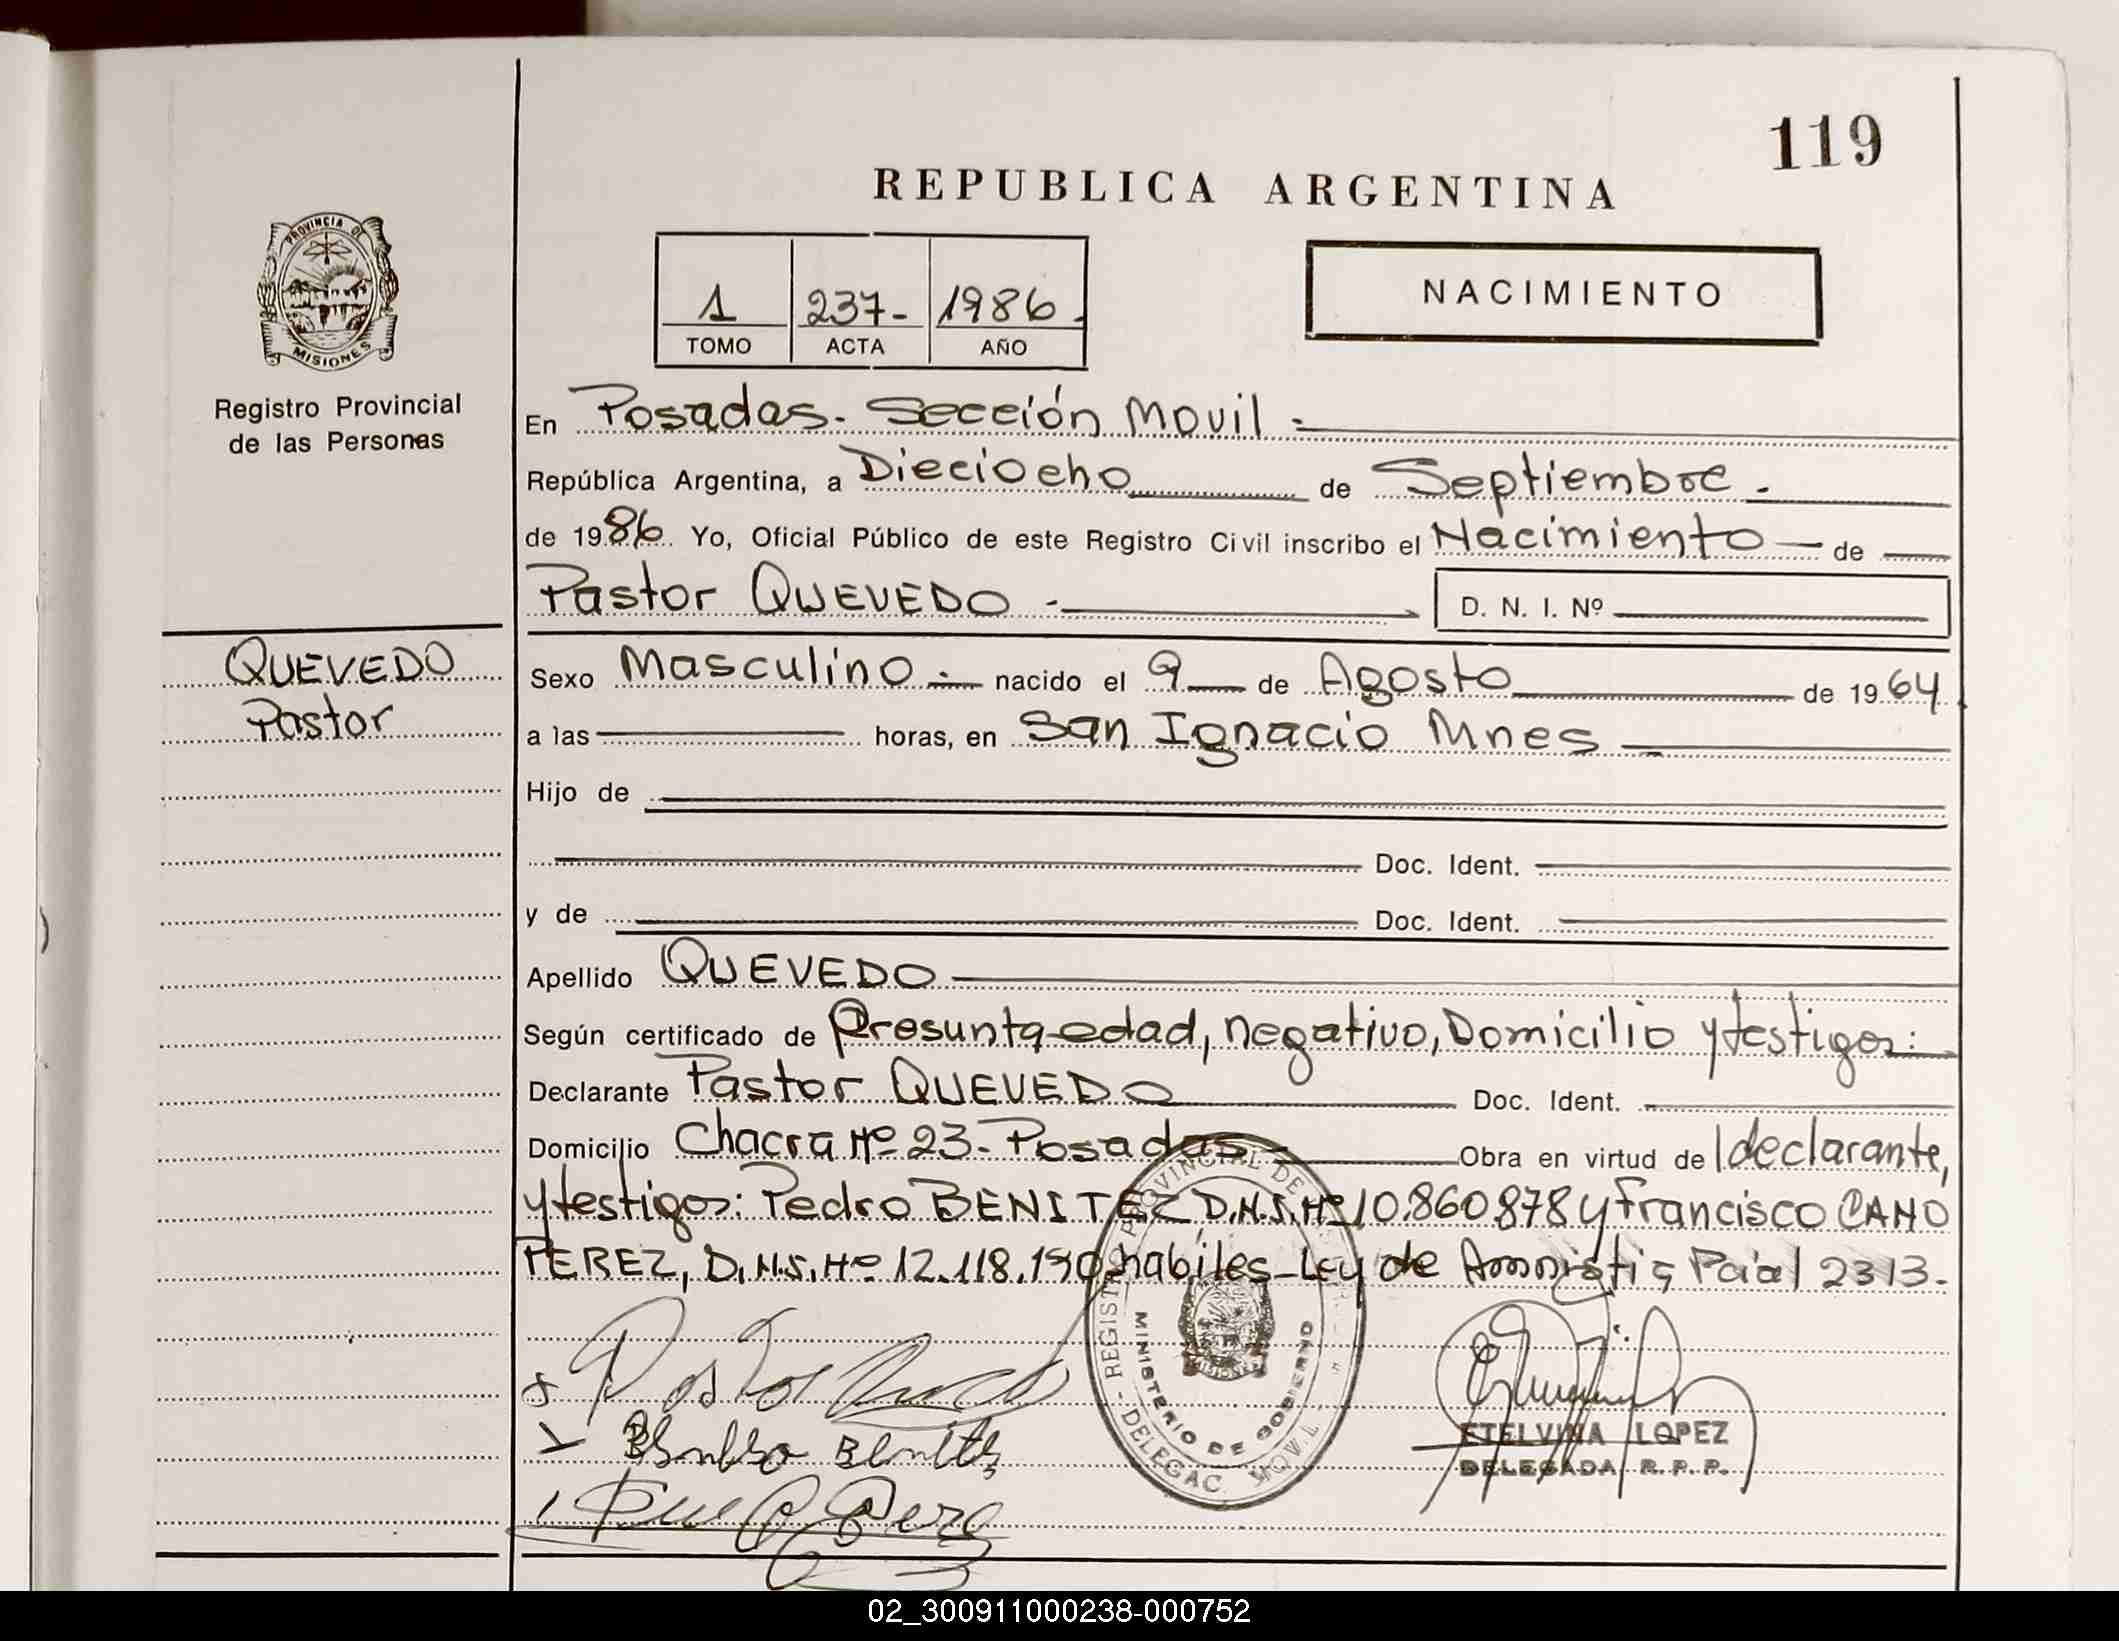 119
REPUBLICA ARGENTINA
PROVINCIA DE
MISIONES
1 237- 1986.
TOMO ACTA AÑO
NACIMIENTO
Registro Provincial
de las Personas
En Posadas. Sección Movil.
República Argentina, a Dieciocho de Septiembre.
de 1986 Yo, Oficial Público de este Registro Civil inscribo el Nacimiento de
Pastor QUEVEDO D. N. I. Nº
QUEVEDO
Pastor
Sexo Masculino nacido el 9 de Agosto de 1964
a las horas, en San Ignacio Mnes
Hijo de
Doc. Ident.
y de Doc. Ident.
Apellido QUEVEDO
Según certificado de Presunta edad, negativo, Domicilio y testigos:
Declarante Pastor QUEVEDO Doc. Ident.
Domicilio Chacra Nº 23- Posadas Obra en virtud de declarante,
y testigos: Pedro BENITEZ D.N.I. Nº 10.860.878 y Francisco CANO
PEREZ, D.N.I. Nº 12.118.190 habiles- Ley de Amnistia Pcial 2313.
MINISTERIO DE GOBIERNO
DELEGAC. MOVIL
ETELVINA LOPEZ
DELEGADA R. P. P.
02_300911000238-000752